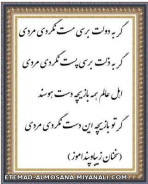 گر به دولت برسی مست نگردی مردی
گر به ذلت برسی پست نگردی مردی
اهل عالم همه بازیچه دست هوسند
گر تو بازیچه این دست نگردی مردی
(سخنان زیبا و پندآموز)
ETEMAD-ALMOSANA.MIYANALI.COM